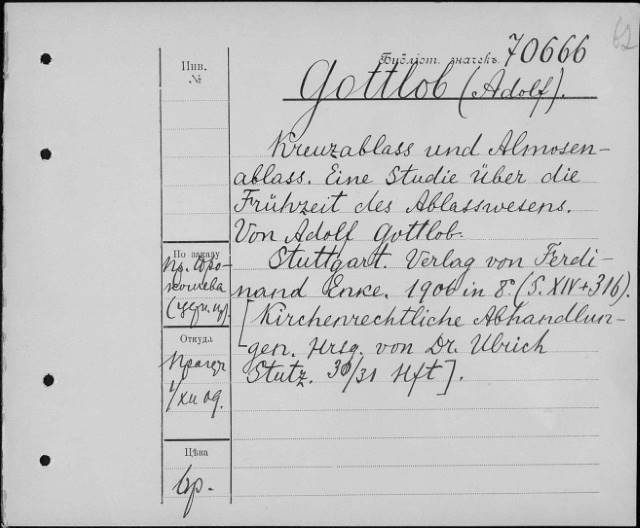 62
Библіот. значекъ 70666
Инв.
№
Gottlob (Adolf).
Kreuzablass und Almosen-
ablass. Eine Studie über die
Frühzeit des Ablasswesens.
Von Adolf Gottlob.
Stuttgart. Verlag von Ferdi-
nand Enke. 1906 in 8°. (S. XIV + 316).
[Kirchenrechtliche Abhandlun-
gen. Hrsg. von Dr. Ulrich
Stutz. 30/31 Hft].
По заказу
пр.
Откуда
1/XII 09.
Цѣна